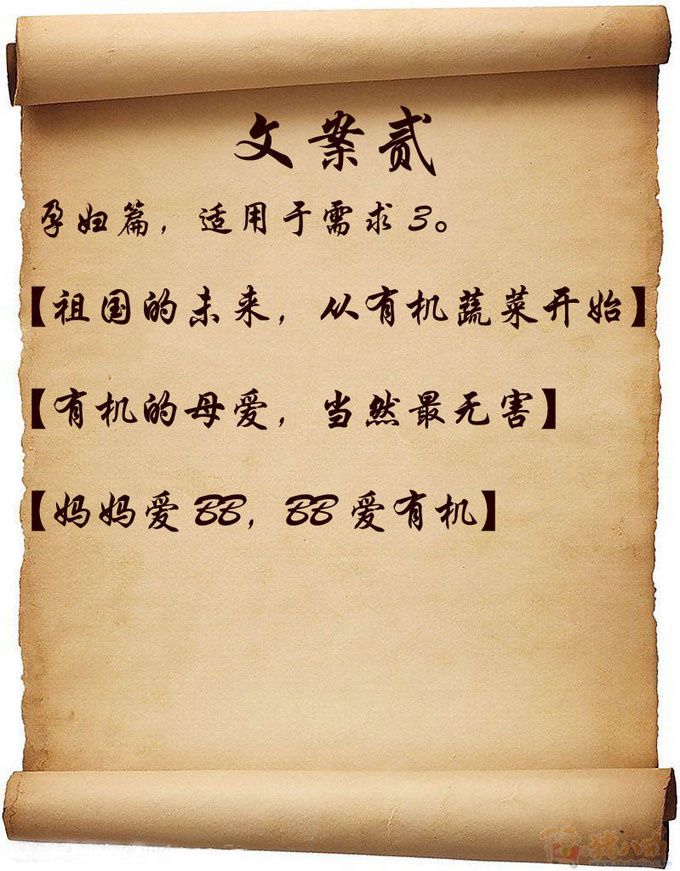 文案贰
孕妇篇，适用于需求3。
【祖国的未来，从有机蔬菜开始】
【有机的母爱，当然最无害】
【妈妈爱BB，BB爱有机】
猪八戒